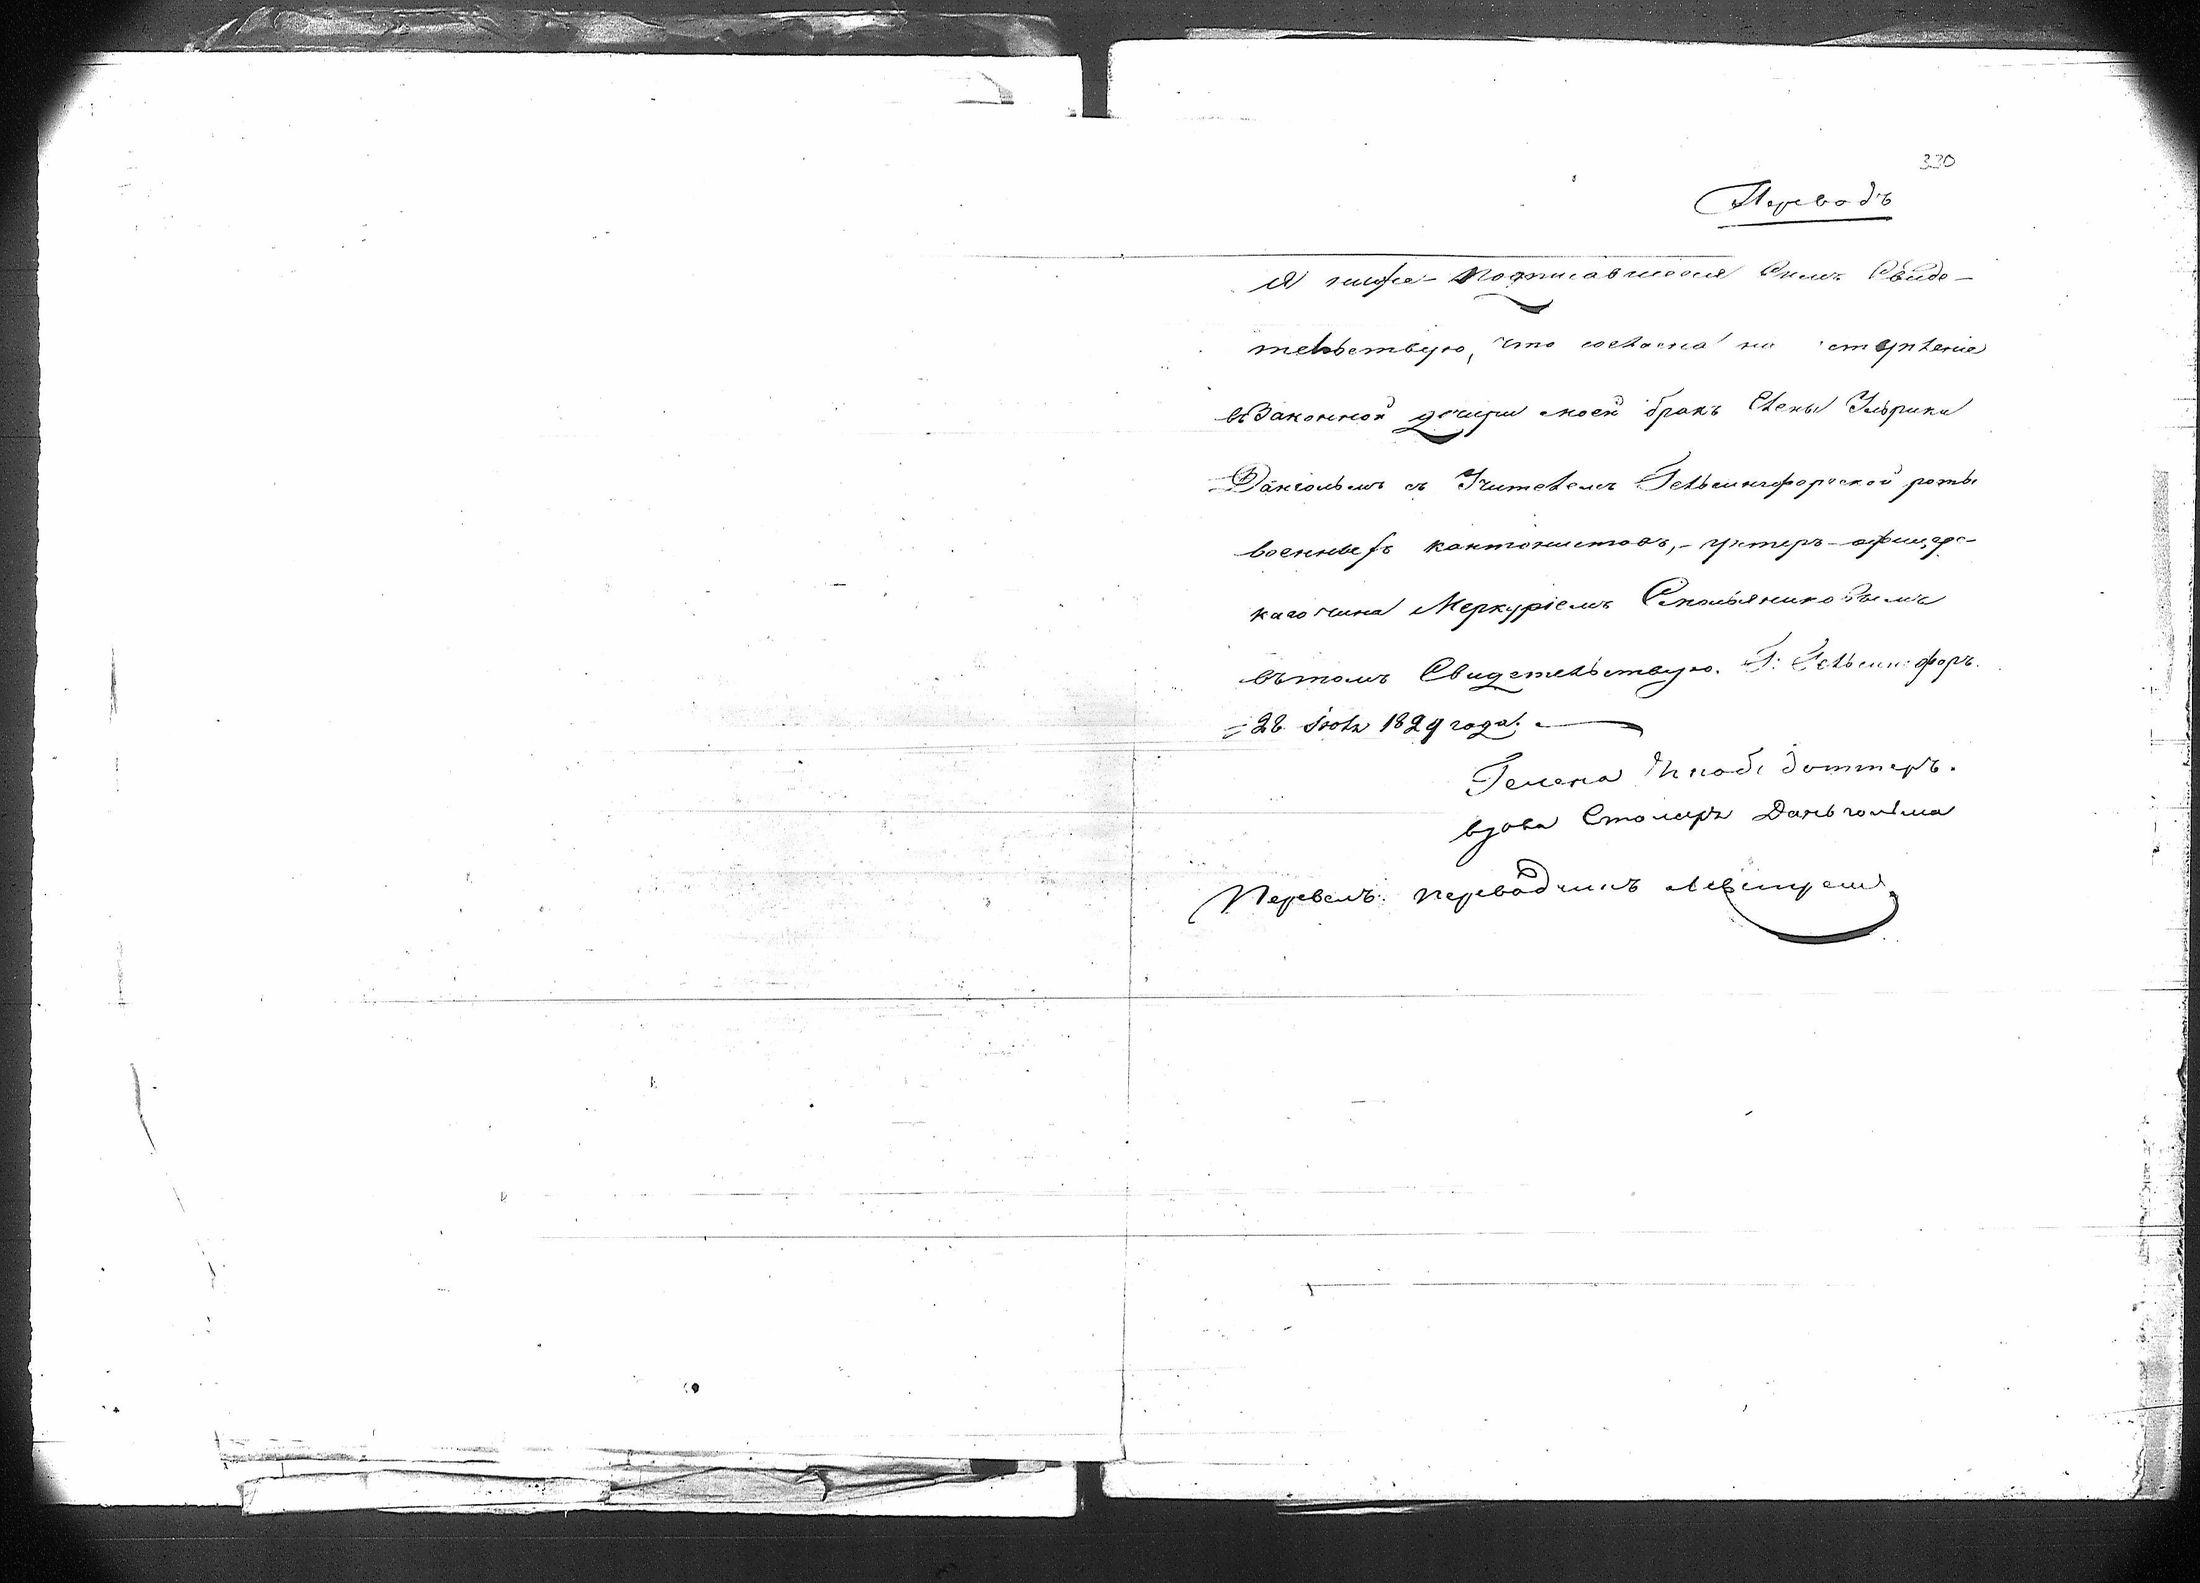 330
Переводъ
Я ниже-подписавшееся Симъ Свиде-
тельствую, что согласна на ступленіе
въ Законной дочери моей бракъ Елены Ульрики
Дангольмъ съ Учителемъ Гельсингфорской роты
военныхъ кантонистовъ, - унтеръ-офицерс-
каго чина Меркуріемъ Смольяниковымъ
въ томъ Свидетельствую. Г: Гельсингфоръ.
28 Іюля 1829 года.
Гелена доттеръ.
вдова Столяра Даньгольма
Перевелъ: переводчикъ